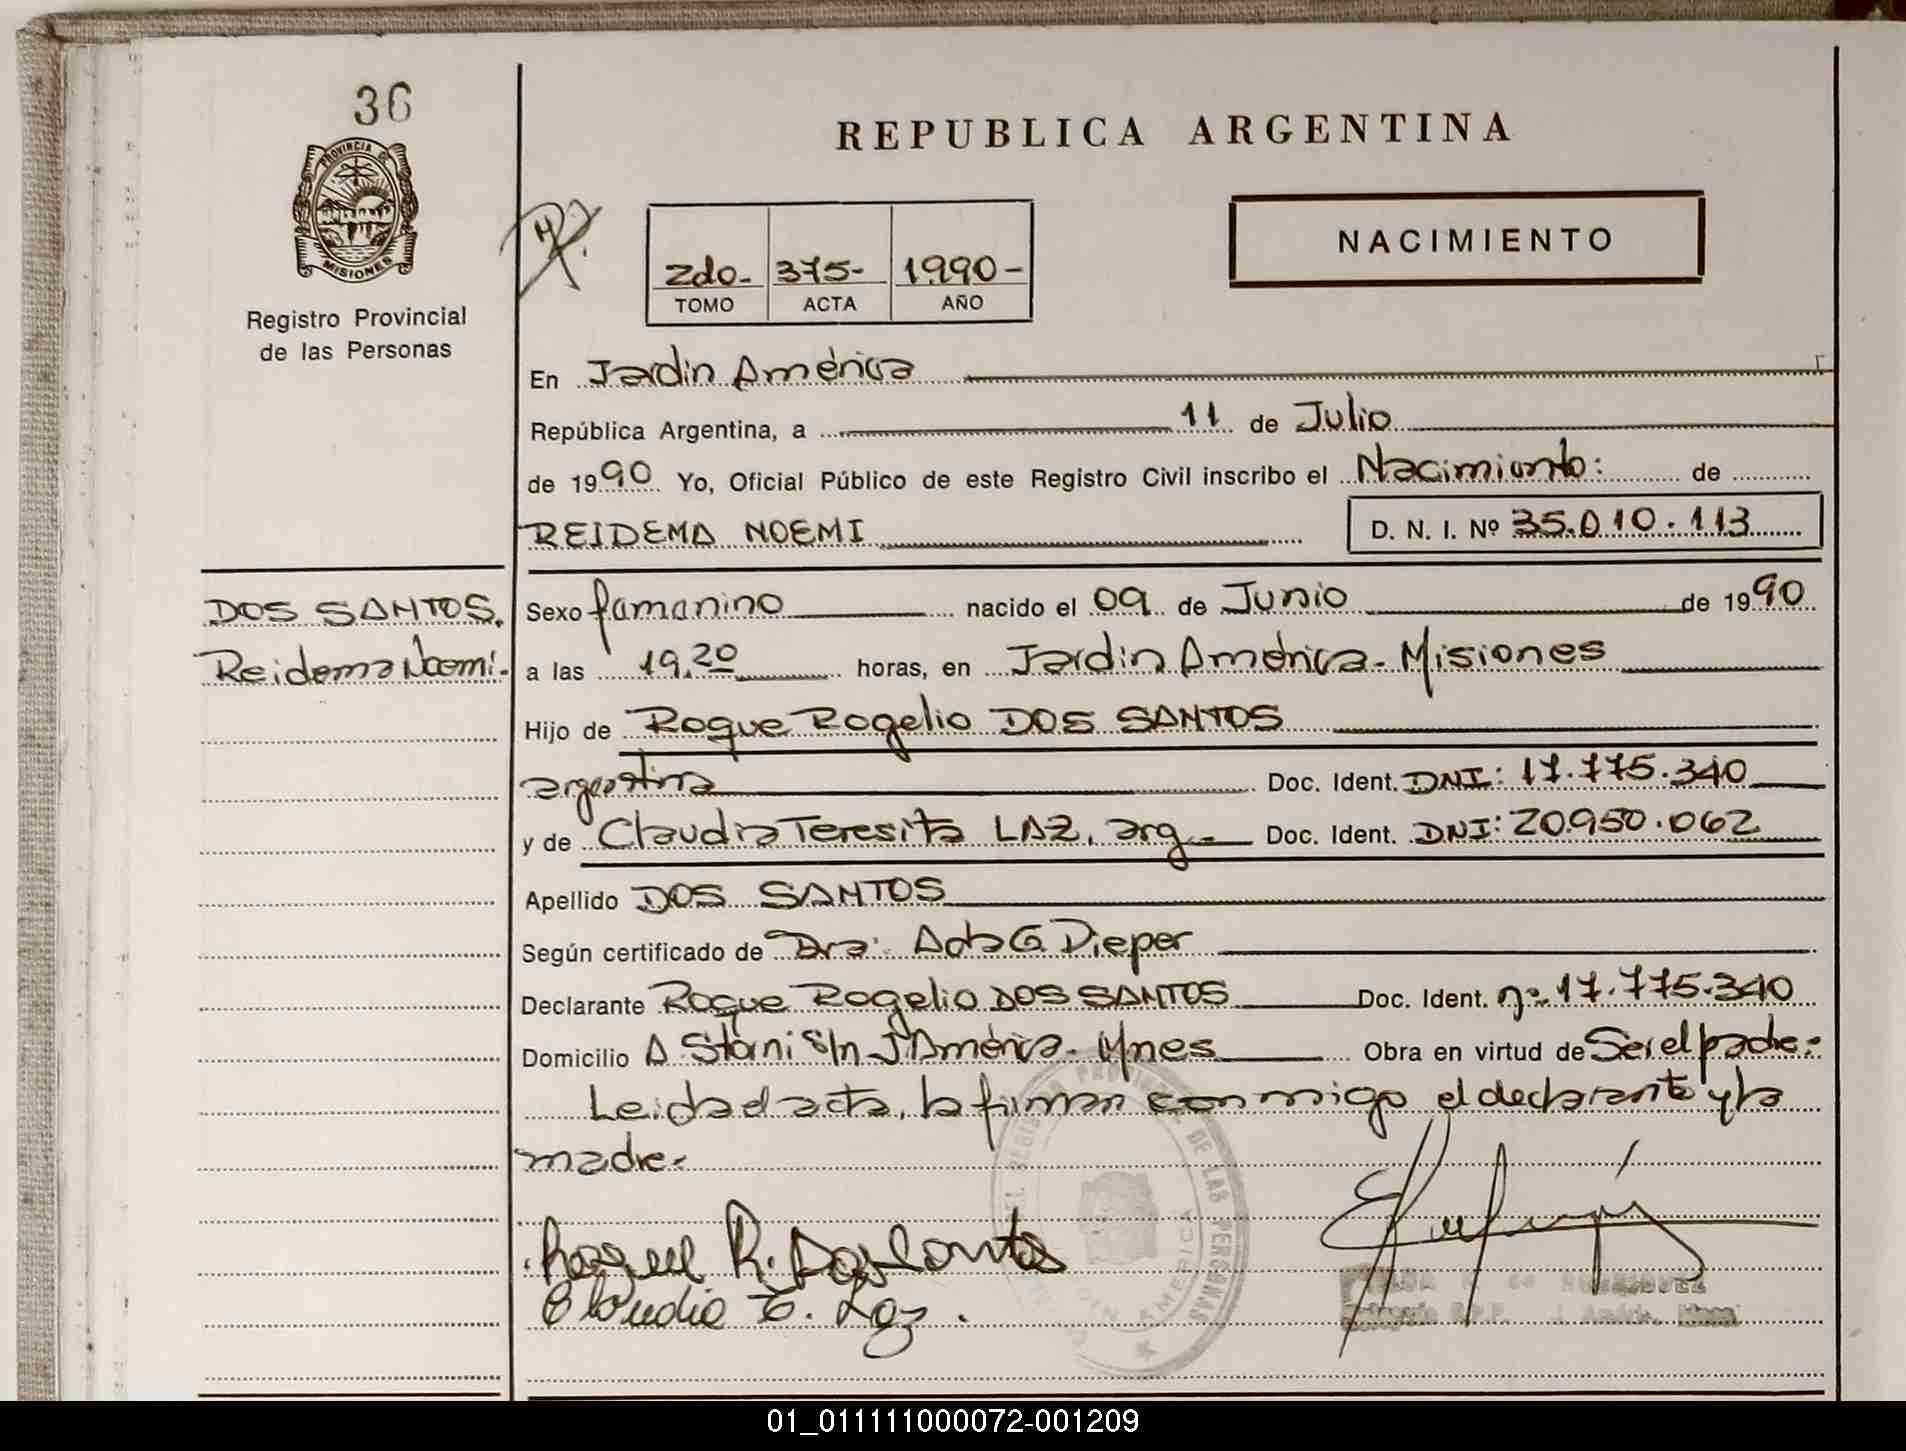 36
PROVINCIA DE
MISIONES
Registro Provincial
de las Personas
REPUBLICA ARGENTINA
2do- 375- 1990-
TOMO ACTA AÑO
NACIMIENTO
En Jardin América
República Argentina, a 11 de Julio
de 1990 Yo, Oficial Público de este Registro Civil inscribo el Nacimiento: de
REIDEMA NOEMI D. N. I. Nº 35.010.113
DOS SANTOS.
Reidema Noemi-
Sexo famanino nacido el 09 de Junio de 1990
a las 19,20 horas, en Jardin América- Misiones
Hijo de Roque Rogelio DOS SANTOS
argentina Doc. Ident. DNI: 17.775.340
y de Claudia Teresita LAZ, arg- Doc. Ident. DNI: 20.950.062
Apellido DOS SANTOS
Según certificado de Dra. Ada G. Dieper
Declarante Roque Rogelio DOS SANTOS Doc. Ident. nº 17.775.340
Domicilio A. Storni S/n J América- Mnes Obra en virtud de Ser el padre.
Leida el acta, la firman conmigo el declarante y la
madre.
DE LAS PERSONAS
AMERICA
Roque R. Dos Santos
Claudia T. Laz.
01_011111000072-001209